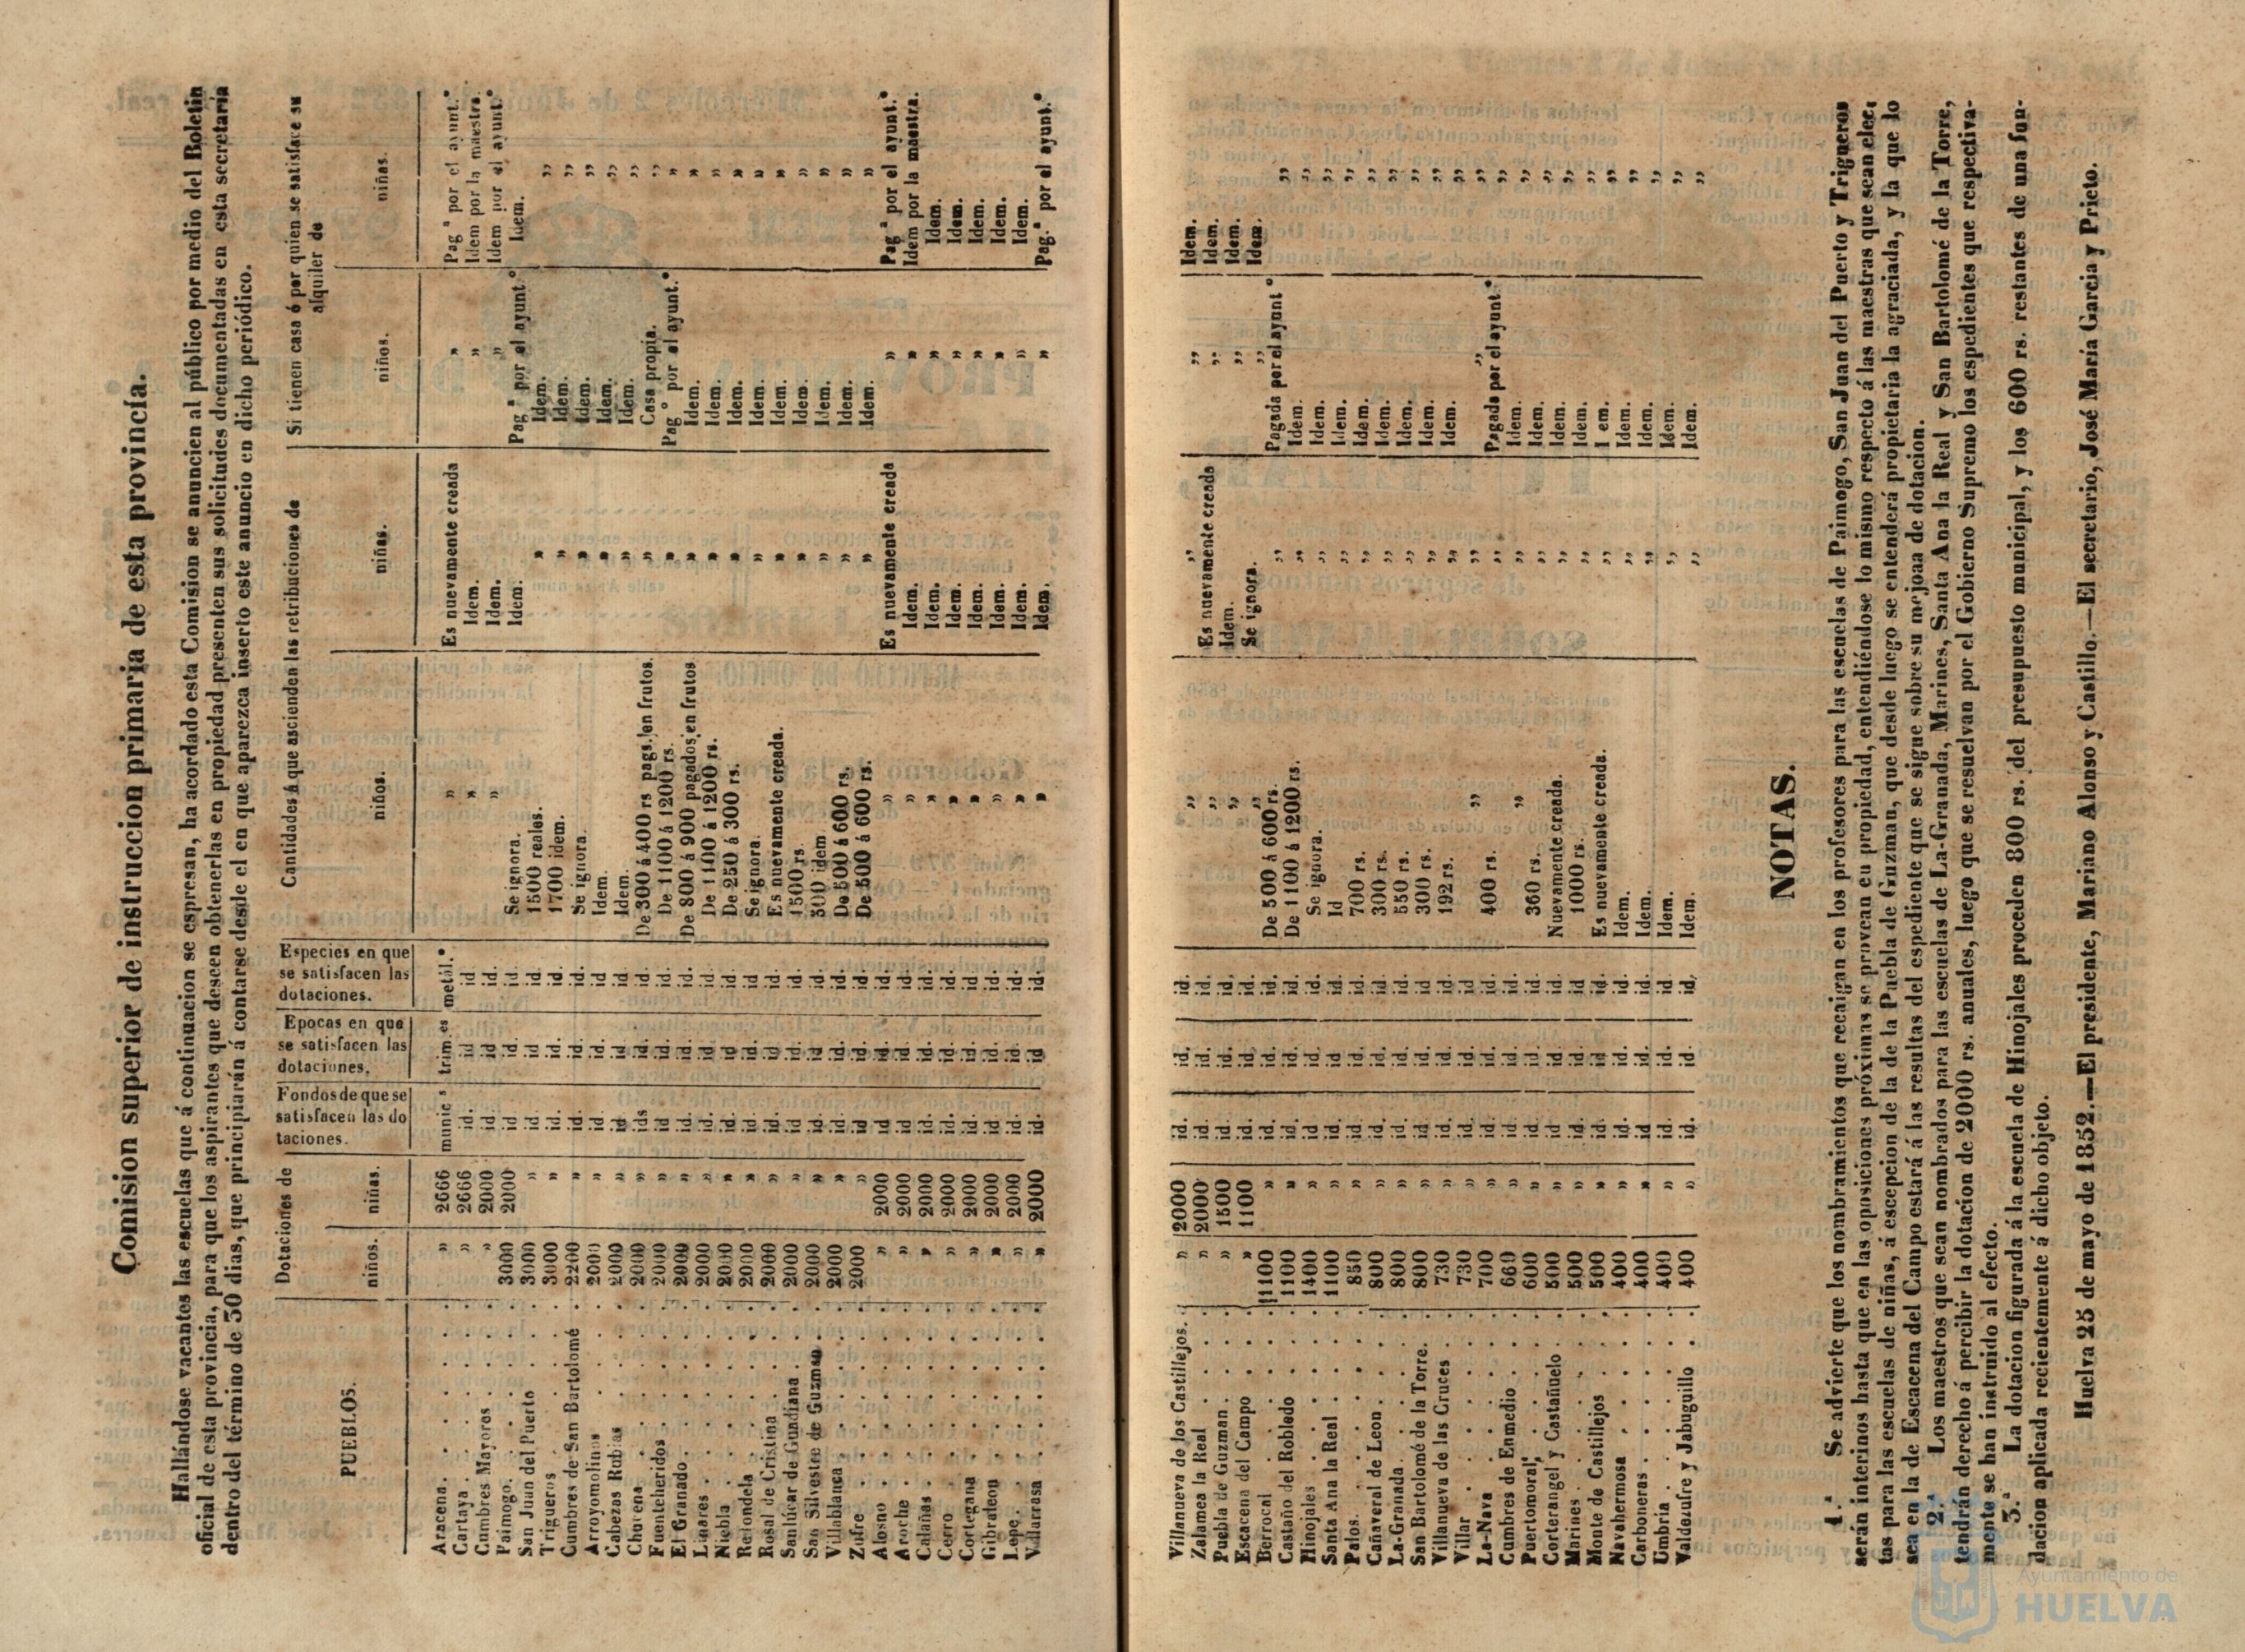 Comision superior de instruccion primaria de esta provincia.
Hallándose vacantes las escuelas que á continuacion se espresan, ha acordado esta Comision se anuncien al público por medio del Boletin
oficial de esta provincia, para que los aspirantes que deseen obtenerlas en propiedad presenten sus solicitudes documentadas en esta secretaría
dentro del término de 30 dias, que principiarán á contarse desde el en que aparezca inserto este anuncio en dicho periódico.
PUEBLOS. Dotaciones de Fondos de que se satisfacen las dotaciones. Epocas en que se satisfacen las dotaciones. Especies en que se satisfacen las dotaciones. Cantidades á que ascienden las retribuciones de Si tienen casa ó por quien se satisface su alquiler de
niños. niñas. niños. niñas. niños. niñas.
Aracena. » 2666 munic.s trim.es metál.º » Es nuevamente creada » Pag.ª por el ayunt.º
Cartaya » 2666 id. id id » Idem. » Idem por la maestra.
Cumbres Mayores » 2000 id id id. » Idem. » Idem por el ayunt.º
Paimogo. 3000 2000 id id. id. Se ignora. Idem. Pag.ª por el ayunt.º Idem.
San Juan del Puerto 3000 » id. id. id. 1500 reales. » Idem. »
Trigueros 3000 » id. id. id. 1700 idem. » Idem. »
Cumbres de San Bartolomé 2200 » id. id. id. Se ignora. » Idem. »
Arroyomolinos 2000 » id. id. id. Idem. » Idem. »
Cabezas Rubias 2000 » id id. id. Idem. » Idem. »
Chucena 2000 » ids id. id. De 300 á 400 rs pags. en frutos. » Casa propia. »
Fuenteheridos 2000 » id id. id. De 1100 á 1200 rs. » Pag.º por el ayunt.º »
El Granado 2000 » id. id. id. De 800 á 900 pagados en frutos » Idem. »
Linares 2000 » id. id. id. De 1100 á 1200 rs. » Idem. »
Niebla 2000 » id. id. id. De 250 á 300 rs. » Idem. »
Redondela 2000 » id. id. id. Se ignora. » Idem. »
Rosal de Cristina 2000 » id. id. id. Es nuevamente creada. » Idem. »
Sanlúcar de Guadiana 2000 » id. id. id. 1500 rs. » Idem. »
San Silvestre de Guzman 2000 » id. id. id. 500 idem » Idem. »
Villablanca 2000 » id. id. id. De 500 á 600 rs. » Idem. »
Zufre 2000 » id. id. id. De 500 á 600 rs. » Idem. »
Alosno » 2000 id. id. id. » Es nuevamente creada » Pag.ª por el ayunt.º
Aroche » 2000 id. id. id. » Idem. » Idem por la maestra.
Calañas » 2000 id. id. id. » Idem. » Idem.
Cerro » 2000 id. id. id. » Idem. » Idem.
Cortegana » 2000 id. id. id. » Idem. » Idem.
Gibraleon » 2000 id. id. id. » Idem. » Idem.
Lepe. » 2000 id. id. id. » Idem. » Idem.
Villarrasa » 2000 id. id. id. » Idem. » Pag.ª por el ayunt.º
Villanueva de los Castillejos. » 2000 id. id. id. » » » Idem.
Zalamea la Real » 2000 id. id. id. » Es nuevamente creada » Idem.
Puebla de Guzman » 1500 id. id. id. » Idem. » Idem.
Escacena del Campo » 1100 id. id. id. » Se ignora. » Idem.
Berrocal 1100 » id. id. id. De 500 á 600 rs. » Pagada por el ayunt.º »
Castaño del Robledo 1100 » id. id. id. De 1100 á 1200 rs. » Idem. »
Hinojales 1400 » id. id. id. Se ignora. » Idem. »
Santa Ana la Real 1100 » id. id. id. Id » Idem. »
Palos. 850 » id. id. id. 700 rs. » Idem. »
Cañaveral de Leon 800 » id. id. id. 300 rs. » Idem. »
La-Granada 800 » id. id. id. 550 rs. » Idem. »
San Bartolomé de la Torre. 800 » id. id. id. 300 rs. » Idem. »
Villanueva de las Cruces 730 » id. id. id. 192 rs. » Idem. »
Villar 730 » id. id. id. » » » »
La-Nava 700 » id. id. id. 400 rs. » Pagada por el ayunt.º »
Cumbres de Enmedio 660 » id. id. id. » » Idem. »
Puertomoral 600 » id. id. id. 360 rs. » Idem. »
Corterangel y Castañuelo 500 » id id id. Nuevamente creada. » Idem. »
Marines 500 » id. id. id. 1000 rs. » Idem. »
Monte de Castillejos 500 » id. id id. Es nuevamente creada. » I em. »
Navahermosa 400 » id. id. id. Idem. » Idem. »
Carboneras 400 » id. id. id. Idem. » Idem. »
Umbria 400 » id. id. id. Idem. » Idem. »
Valdezufre y Jabuguillo 400 » id. id. id. Idem. » Idem. »
NOTAS.
1.ª Se advierte que los nombramientos que recaigan en los profesores para las escuelas de Paimogo, San Juan del Puerto y Trigueros
serán interinos hasta que en las oposiciones próximas se provean en propiedad, entendiéndose lo mismo respecto á las maestras que sean elec-
tas para las escuelas de niñas, á escepcion de la de la Puebla de Guzman, que desde luego se entenderá propietaria la agraciada, y la que lo
sea en la de Escacena del Campo estará á las resultas del espediente que se sigue sobre su mejoaa de dotacion.
2.ª Los maestros que sean nombrados para las escuelas de La-Granada, Marines, Santa Ana la Real y San Bartolomé de la Torre,
tendrán derecho á percibir la dotacion de 2000 rs. anuales, luego que se resuelvan por el Gobierno Supremo los espedientes que respectiva-
mente se han instruido al efecto.
3.ª La dotacion figurada á la escuela de Hinojales proceden 800 rs. del presupuesto municipal, y los 600 rs. restantes de una fun-
dacion aplicada recientemente á dicho objeto.
Huelva 25 de mayo de 1852.—El presidente, Mariano Alonso y Castillo.—El secretario, José María Garcia y Prieto.
Ayuntamiento de
HUELVA